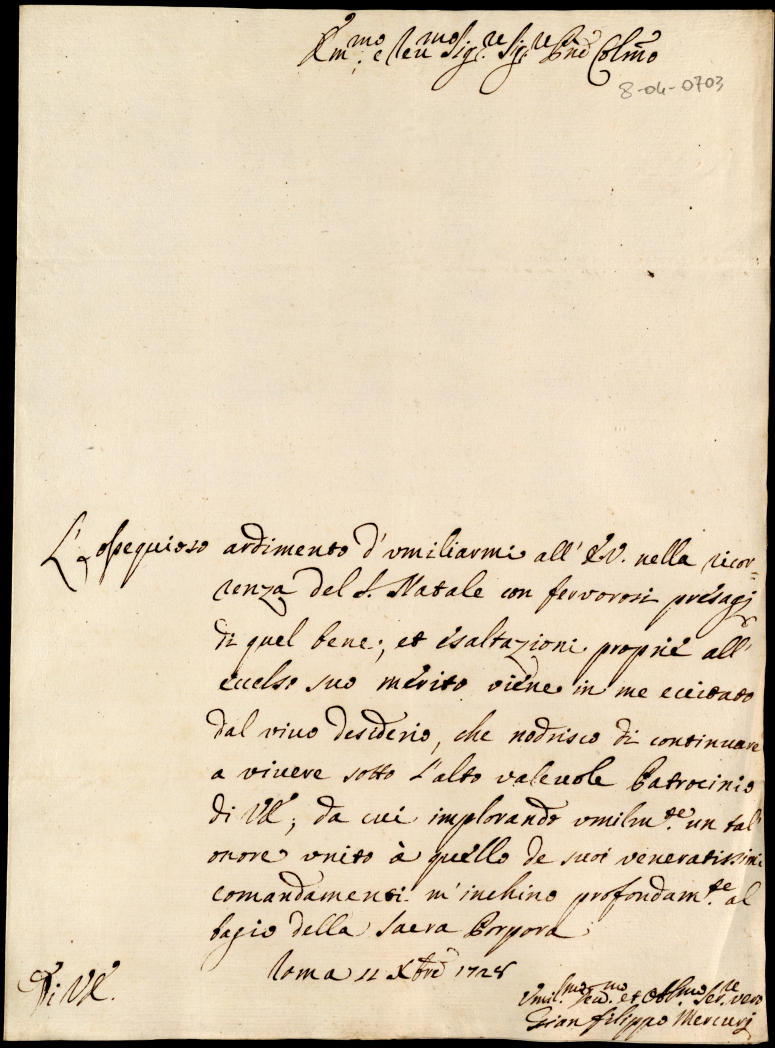 Em.mo e Rev.mo Sig.re Sig.re Pne Colmo
8-04-0703
L'ossequioso ardimento d'umiliarmi all'E.V. nella ricor=
renza del S. Natale con fervorosi presagj
di quel bene, et esaltazioni proprie all'
eccelso suo merito viene in me eccitato
dal vivo desiderio, che nodrisco di continuare
a vivere sotto l'alto valevole Patrocinio
di VE; da cui implorando umilm.te un tal'
onore unito à quello de suoi veneratissimi
comandamenti m'inchino profondam.te al
bagio della Sacra Porpora
Roma 11 Xbre 1728
Di VE.
Umil.mo Dev.mo et Obl.mo Ser.re vero
Gian Filippo Mercurj